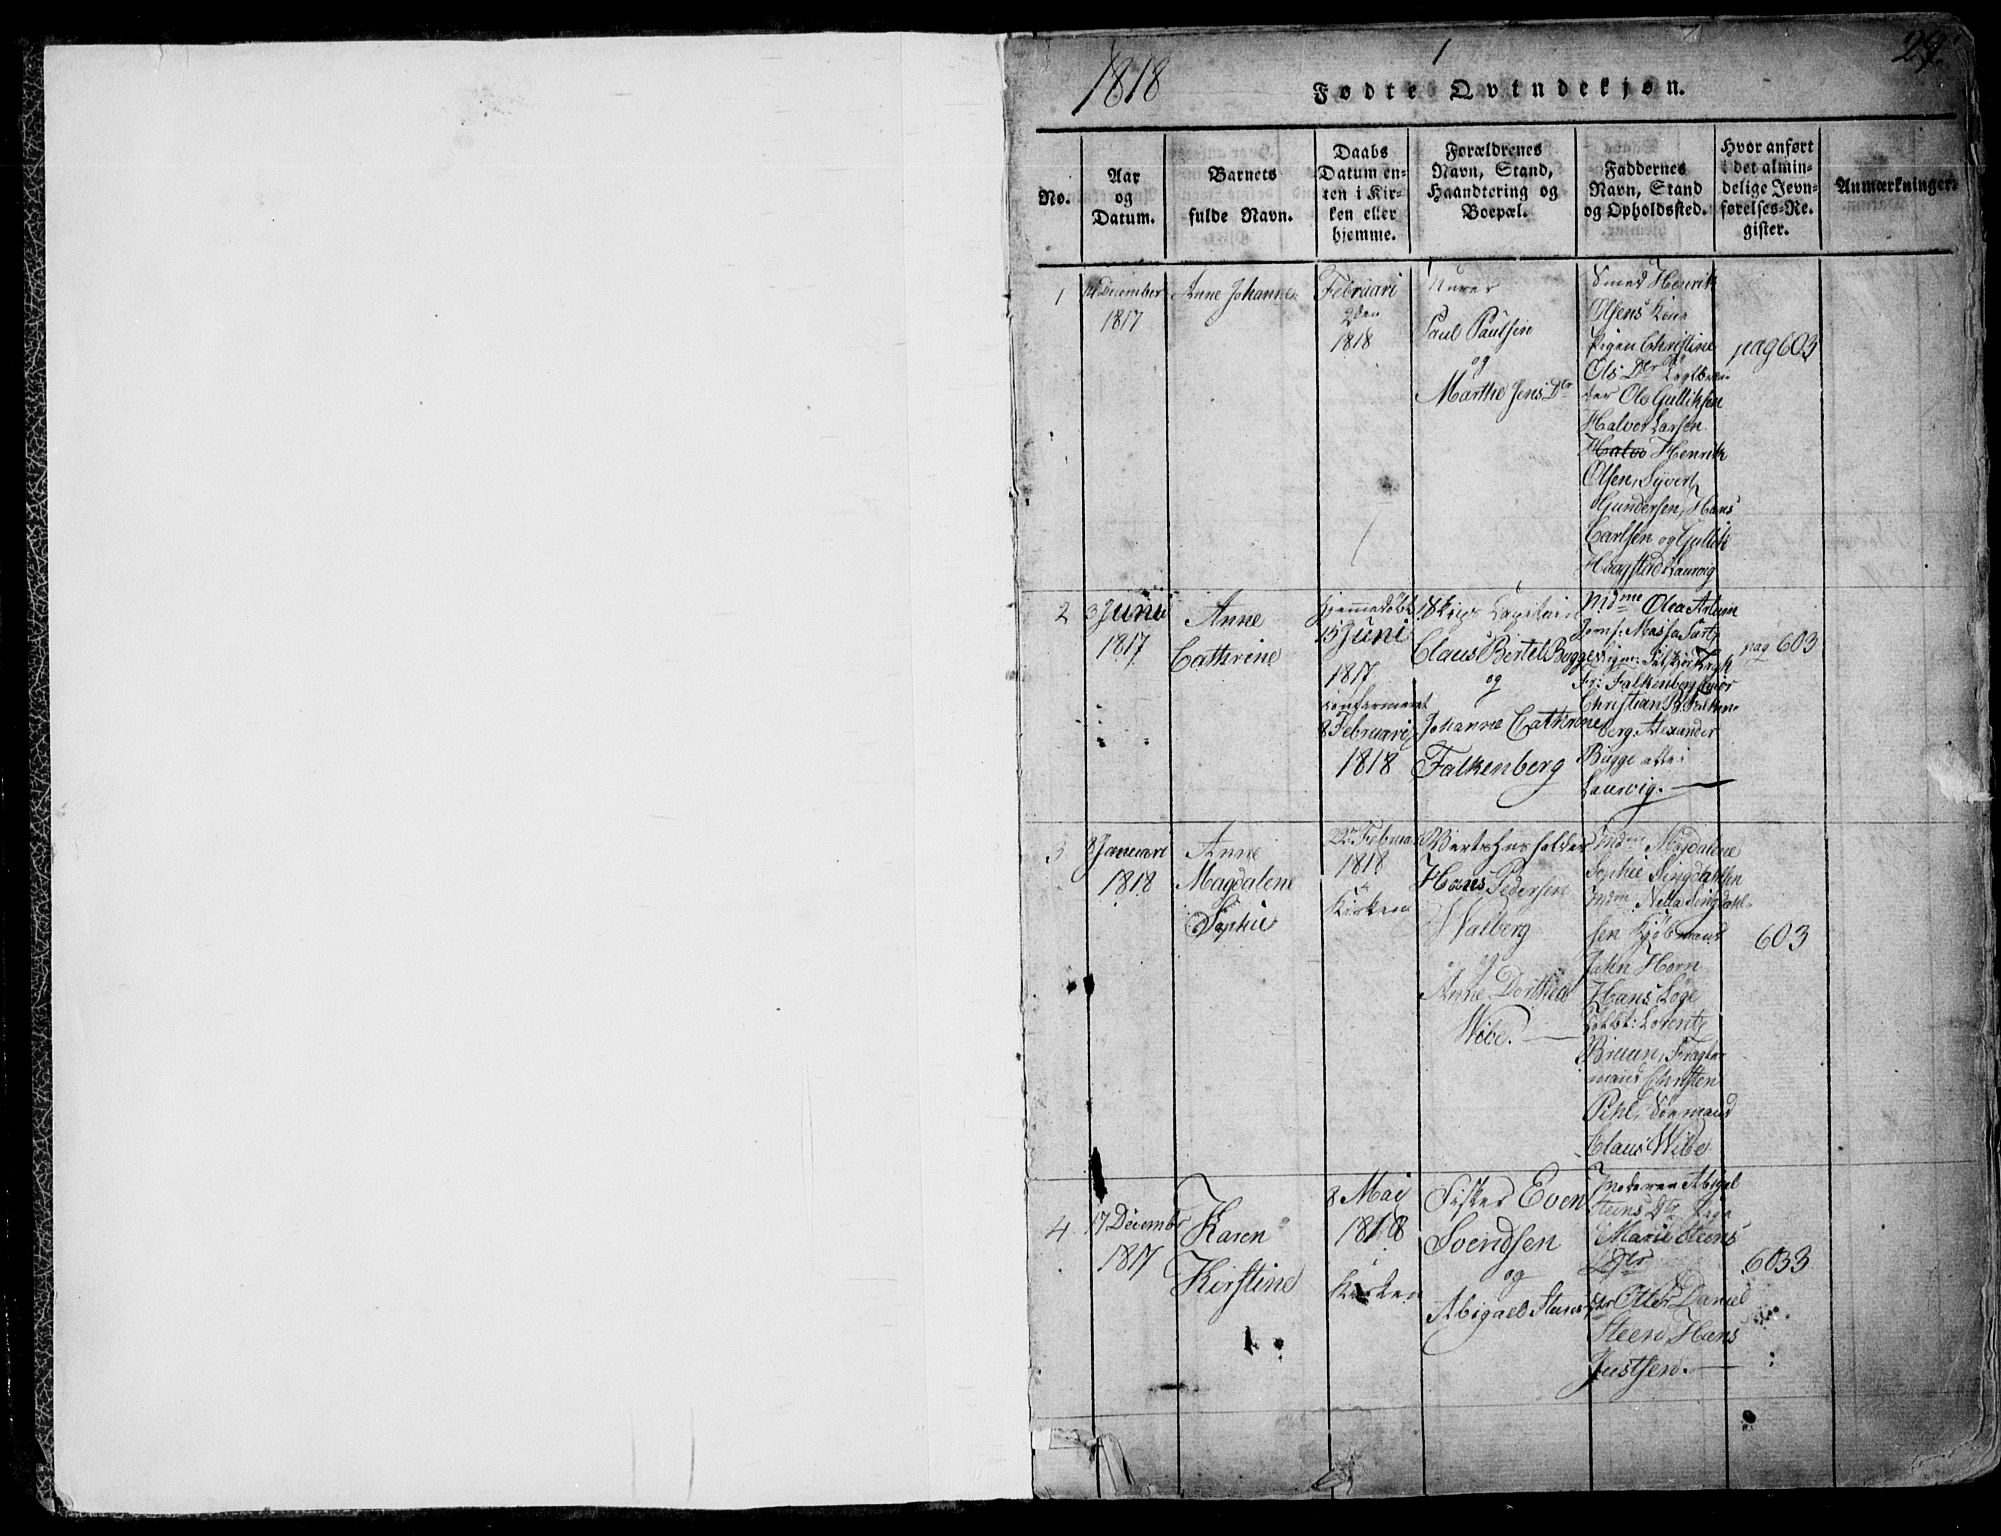 1818
1
29.
Fødte Qvindekjøn.
No.
Aar
og
Datum.
Barnets
fulde Navn.
Daabs
Datum en-
ten i Kir-
ken eller
hjemme.
Forældrenes
Navn, Stand,
Haandtering og
Boepæl.
Faddernes
Navn, Stand
og Opholdssted.
Hvor anført
i det almin-
delige Jevn-
førelses-Re-
gister.
Anmærkninger.
1
December
1817
Anne Johanne
Februari
2den
1818
Paul Paulsen
og
Marthe Jens Dr
Smed Henrik
Olsens Kone
Pigen Christine
Ols Dr
der Ole Gulliksen
Halvor Larsen
Halvo Henrik
Olsen, Syvert
Gundersen, Hans
Carlsen og Gullik
Haagstad Laurvig
pag 603
2
3 Junii
1817
Anne
Cathrine
hjemmedøbt
15 Juni
1817
8 Februari
1818
Skips Capitain
Claus Bertel Bugge
og
Johanne Cathrine
Falkenberg
Mdme Olea
Fr: Falkenberg
Christian B. Falken-
berg Alexander
Bugge alle i
Laurvig.
pag 603
3
8 Januari
1818
Anne
Magdalene
Sophie
22 Februa
1818
Kirken
Vertshusholder
Hans Pedersen
Walberg
og
Anne Dorthea
Wibe.
Magdalene
Sophie Singdahlsen
Netta Singdahl-
sen Kjøbmand
Jahn Horn
Hans Løge
Lorentz
Bruun, Fragte-
mand Christen
Pihl, Sømand
Claus Wibe
603
4
17 Decembr
1817
Karen
Kirstine
8 Mai
1818
Kirken
Fisker Even
Svendsen
og
Abigael Steens Dtr
Moderen Abigel
Steens Dtr
Marie Steens
Dtr
Otter Daniel
Steen Hans
Justsen.
6033